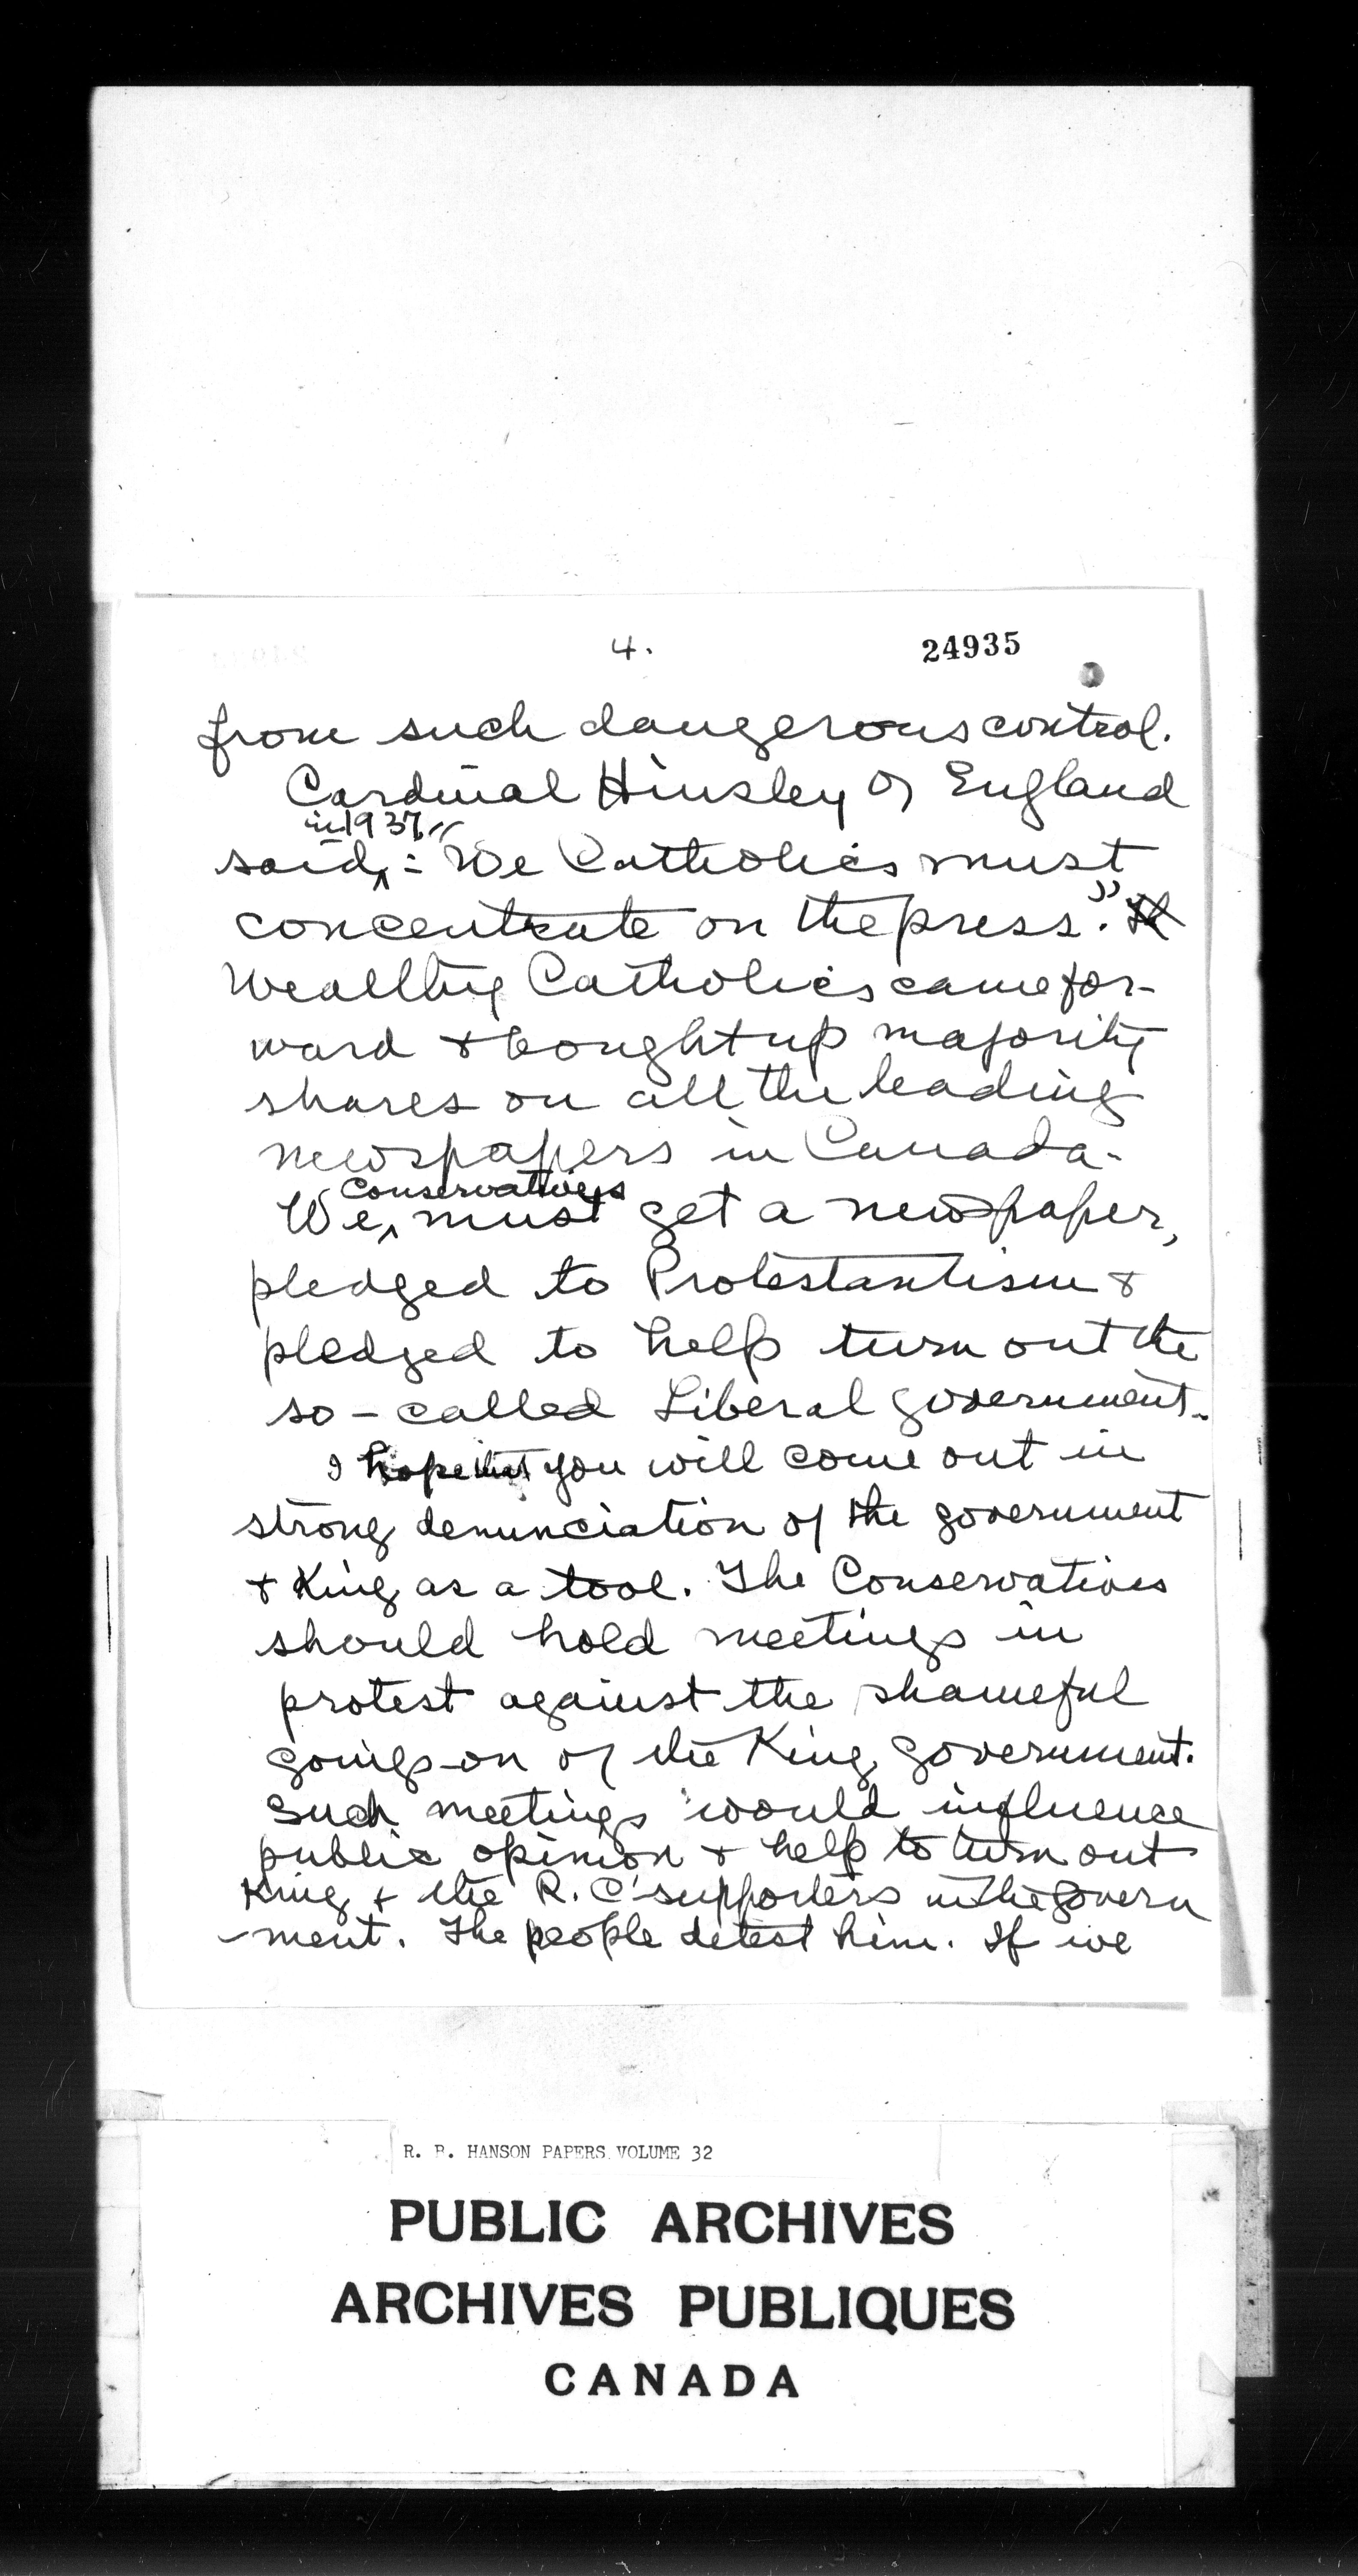 4.
24935
from such dangerous control.
Cardinal Hinsley of England
in 1937
said, : "We Catholics must
concentrate on the press."
Wealthy Catholics came for-
ward & bought up majority
shares on all the leading
newspapers in Canada.
Conservatives
We must get a newspaper,
pledged to Protestantism &
pledged to help turn out the
so-called Liberal government.
I hope that you will come out in
strong denunciation of the government
& King as a tool. The Conservatives
should hold meetings in
protest against the shameful
goings-on of the King government.
Such meetings would influence
public opinion & help to turn out
King & the R. C. supporters in the govern
-ment. The people detest him. If we
R. B. HANSON PAPERS VOLUME 32
PUBLIC ARCHIVES
ARCHIVES PUBLIQUES
CANADA